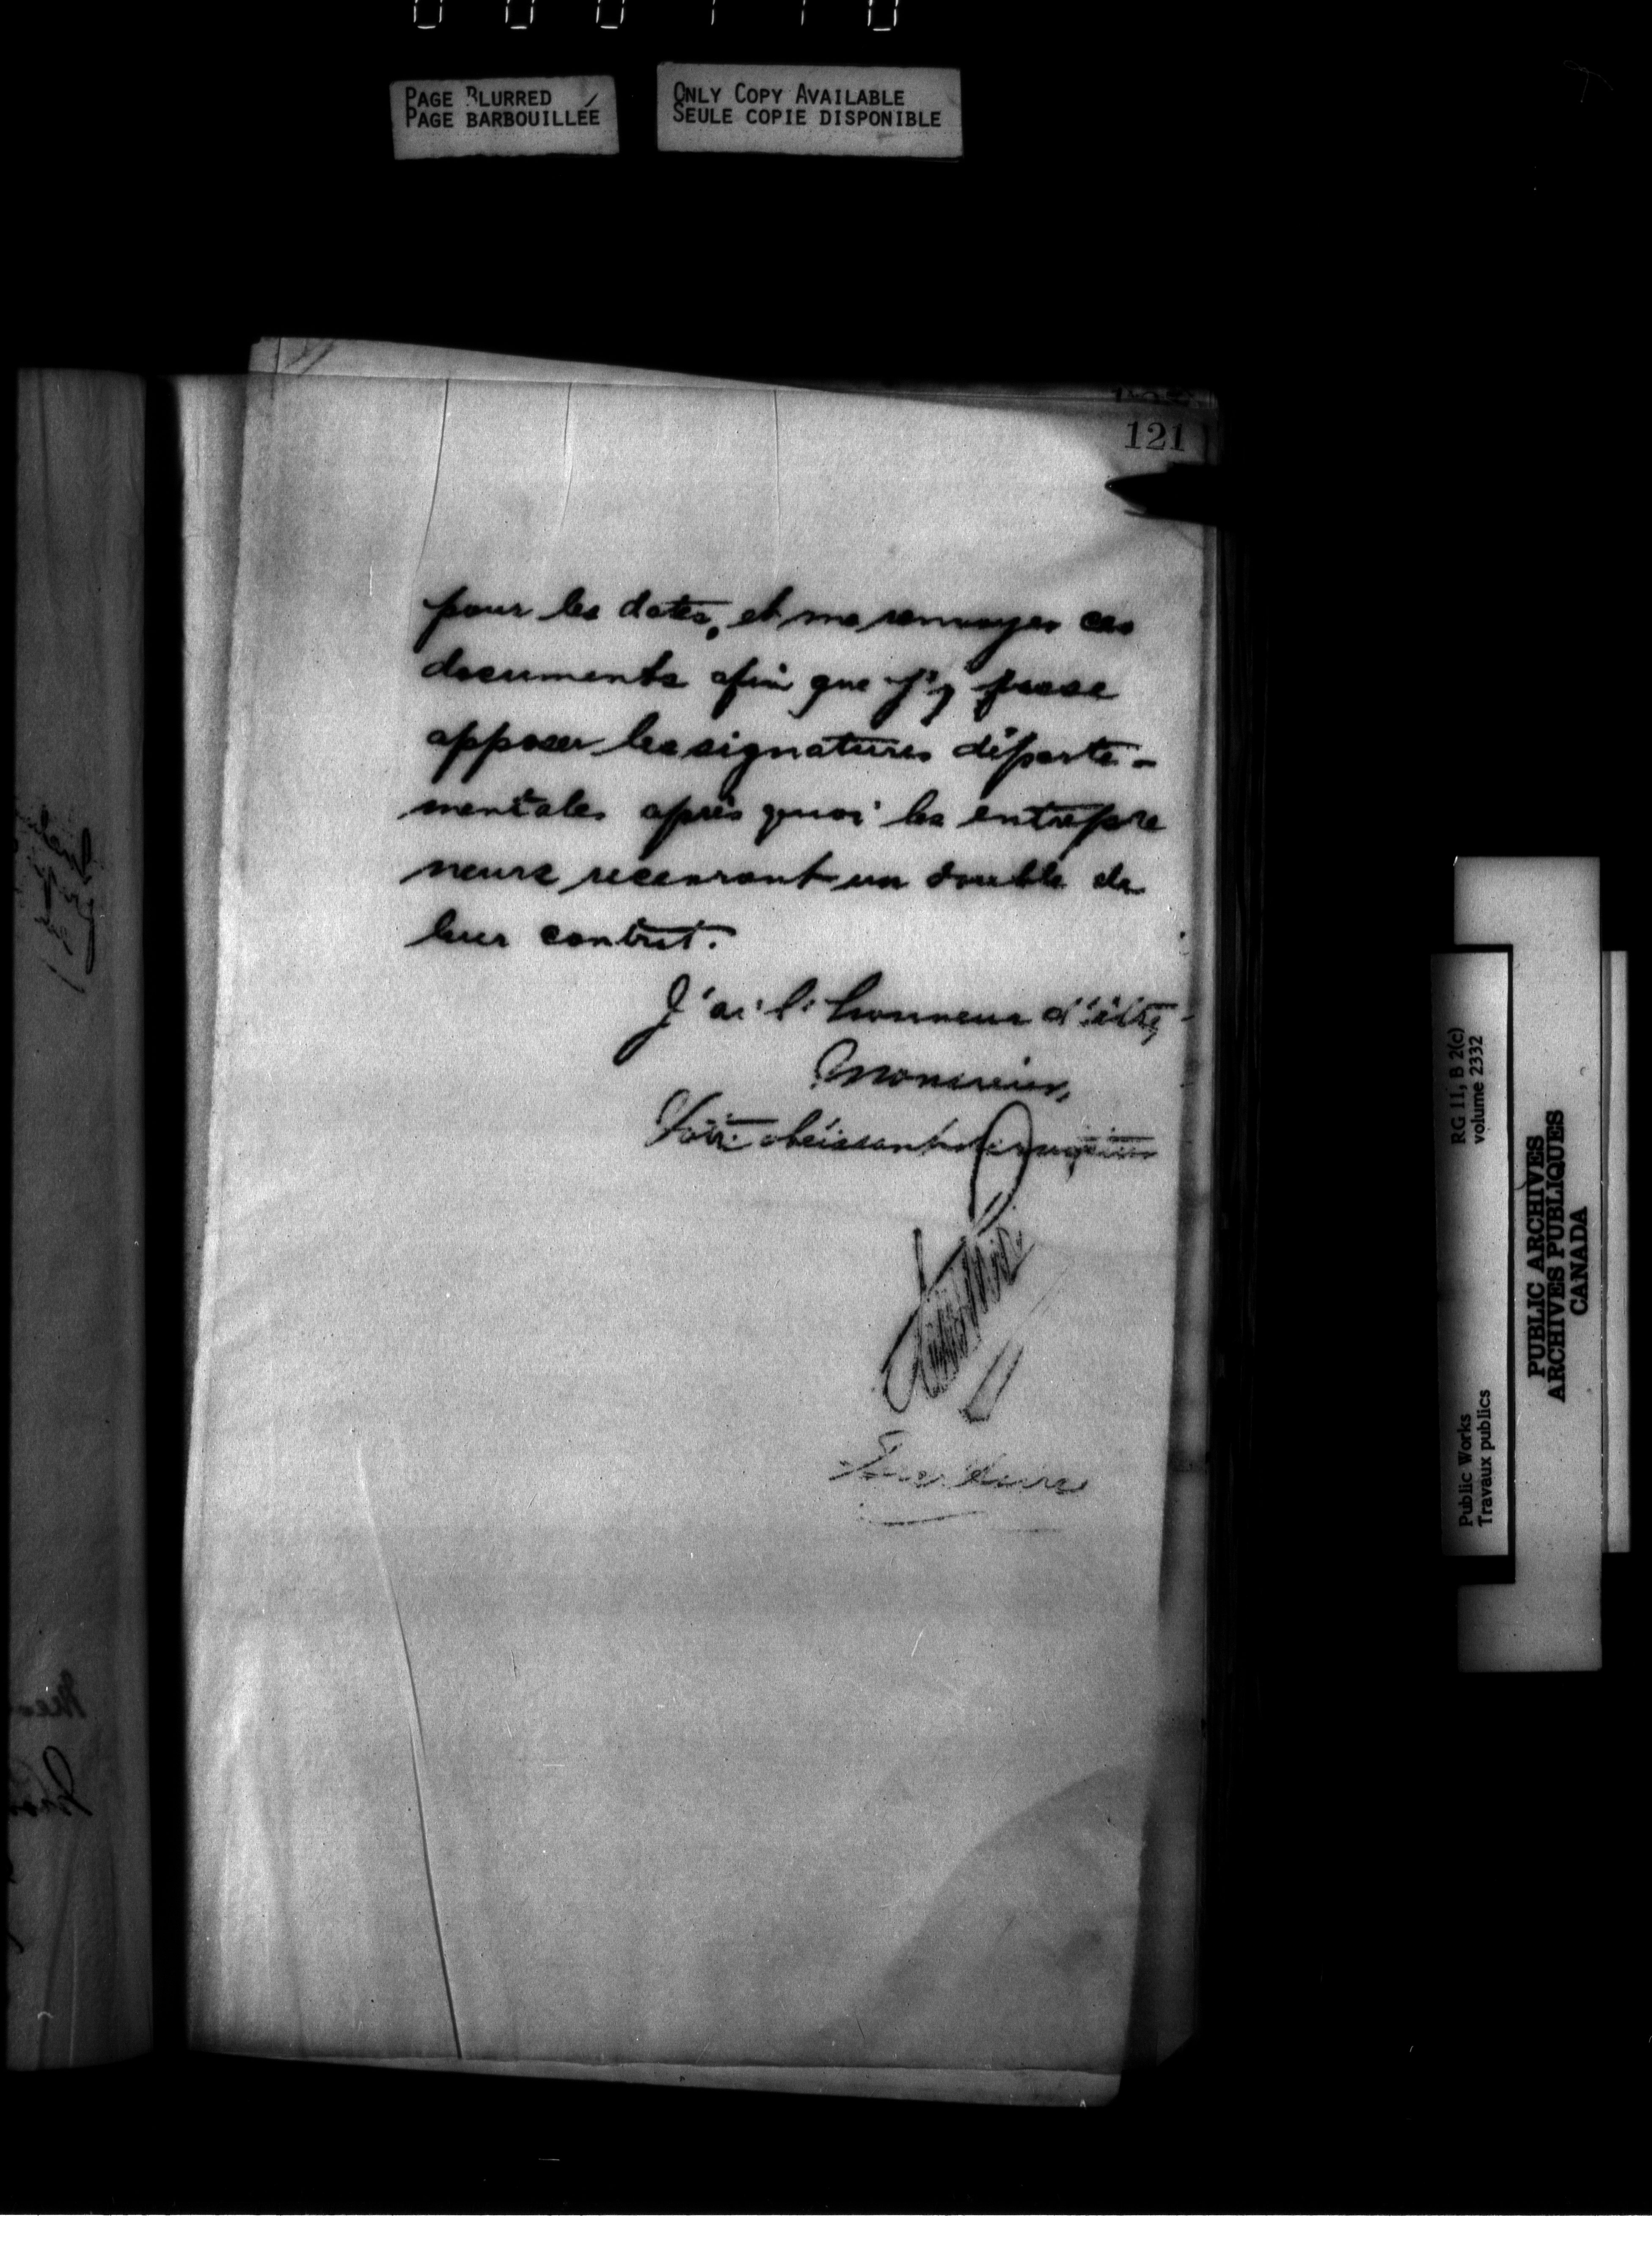 PAGE BLURRED
PAGE BARBOUILLÉE
ONLY COPY AVAILABLE
SEULE COPIE DISPONIBLE
121
pour les dates, et me renvoyer ces
documents afin que j'y fasse
apposer les signatures départe-
mentales après quoi les entrepre
neurs recevront un double de
leur contrat.
J'ai l'honneur d'être,
Monsieur,
Votre obéissant serviteur
Secrétaire
RG 11, B 2(c)
volume 2332
Public Works
Travaux publics
PUBLIC ARCHIVES
ARCHIVES PUBLIQUES
CANADA